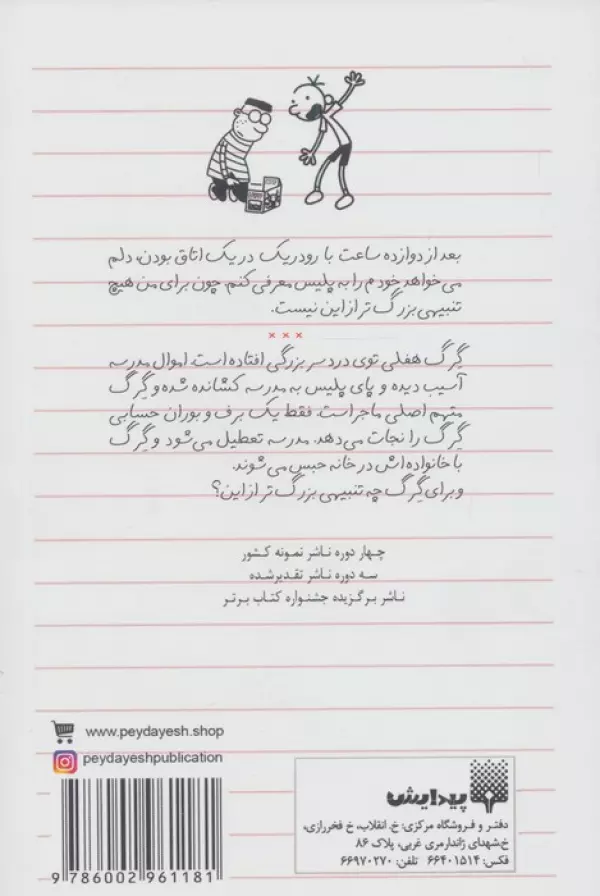 بعد از دوازده ساعت با رودریک در یک اتاق بودن، دلم
می‌خواهد خودم را به پلیس معرفی کنم. چون برای من هیچ
تنبیهی بزرگ‌تر از این نیست.
× × ×
گِرگ هفلی توی دردسر بزرگی افتاده است. اموال مدرسه
آسیب دیده و پای پلیس به مدرسه کشانده شده و گِرگ
متهم اصلی ماجراست. فقط یک برف و بوران حسابی
گِرگ را نجات می‌دهد. مدرسه تعطیل می‌شود و گِرگ
با خانواده‌اش در خانه حبس می‌شوند.
و برای گِرگ چه تنبیهی بزرگ‌تر از این؟
چهار دوره ناشر نمونه کشور
سه دوره ناشر تقدیرشده
ناشر برگزیده جشنواره کتاب برتر
www.peydayesh.shop
peydayeshpublication
9 786002 961181
پیدایش
دفتر و فروشگاه مرکزی: خ. انقلاب، خ فخررازی،
خ.شهدای ژاندارمری غربی، پلاک ۸۶
فکس: ۶۶۴۰۱۵۱۴ تلفن: ۶۶۹۷۰۲۷۰